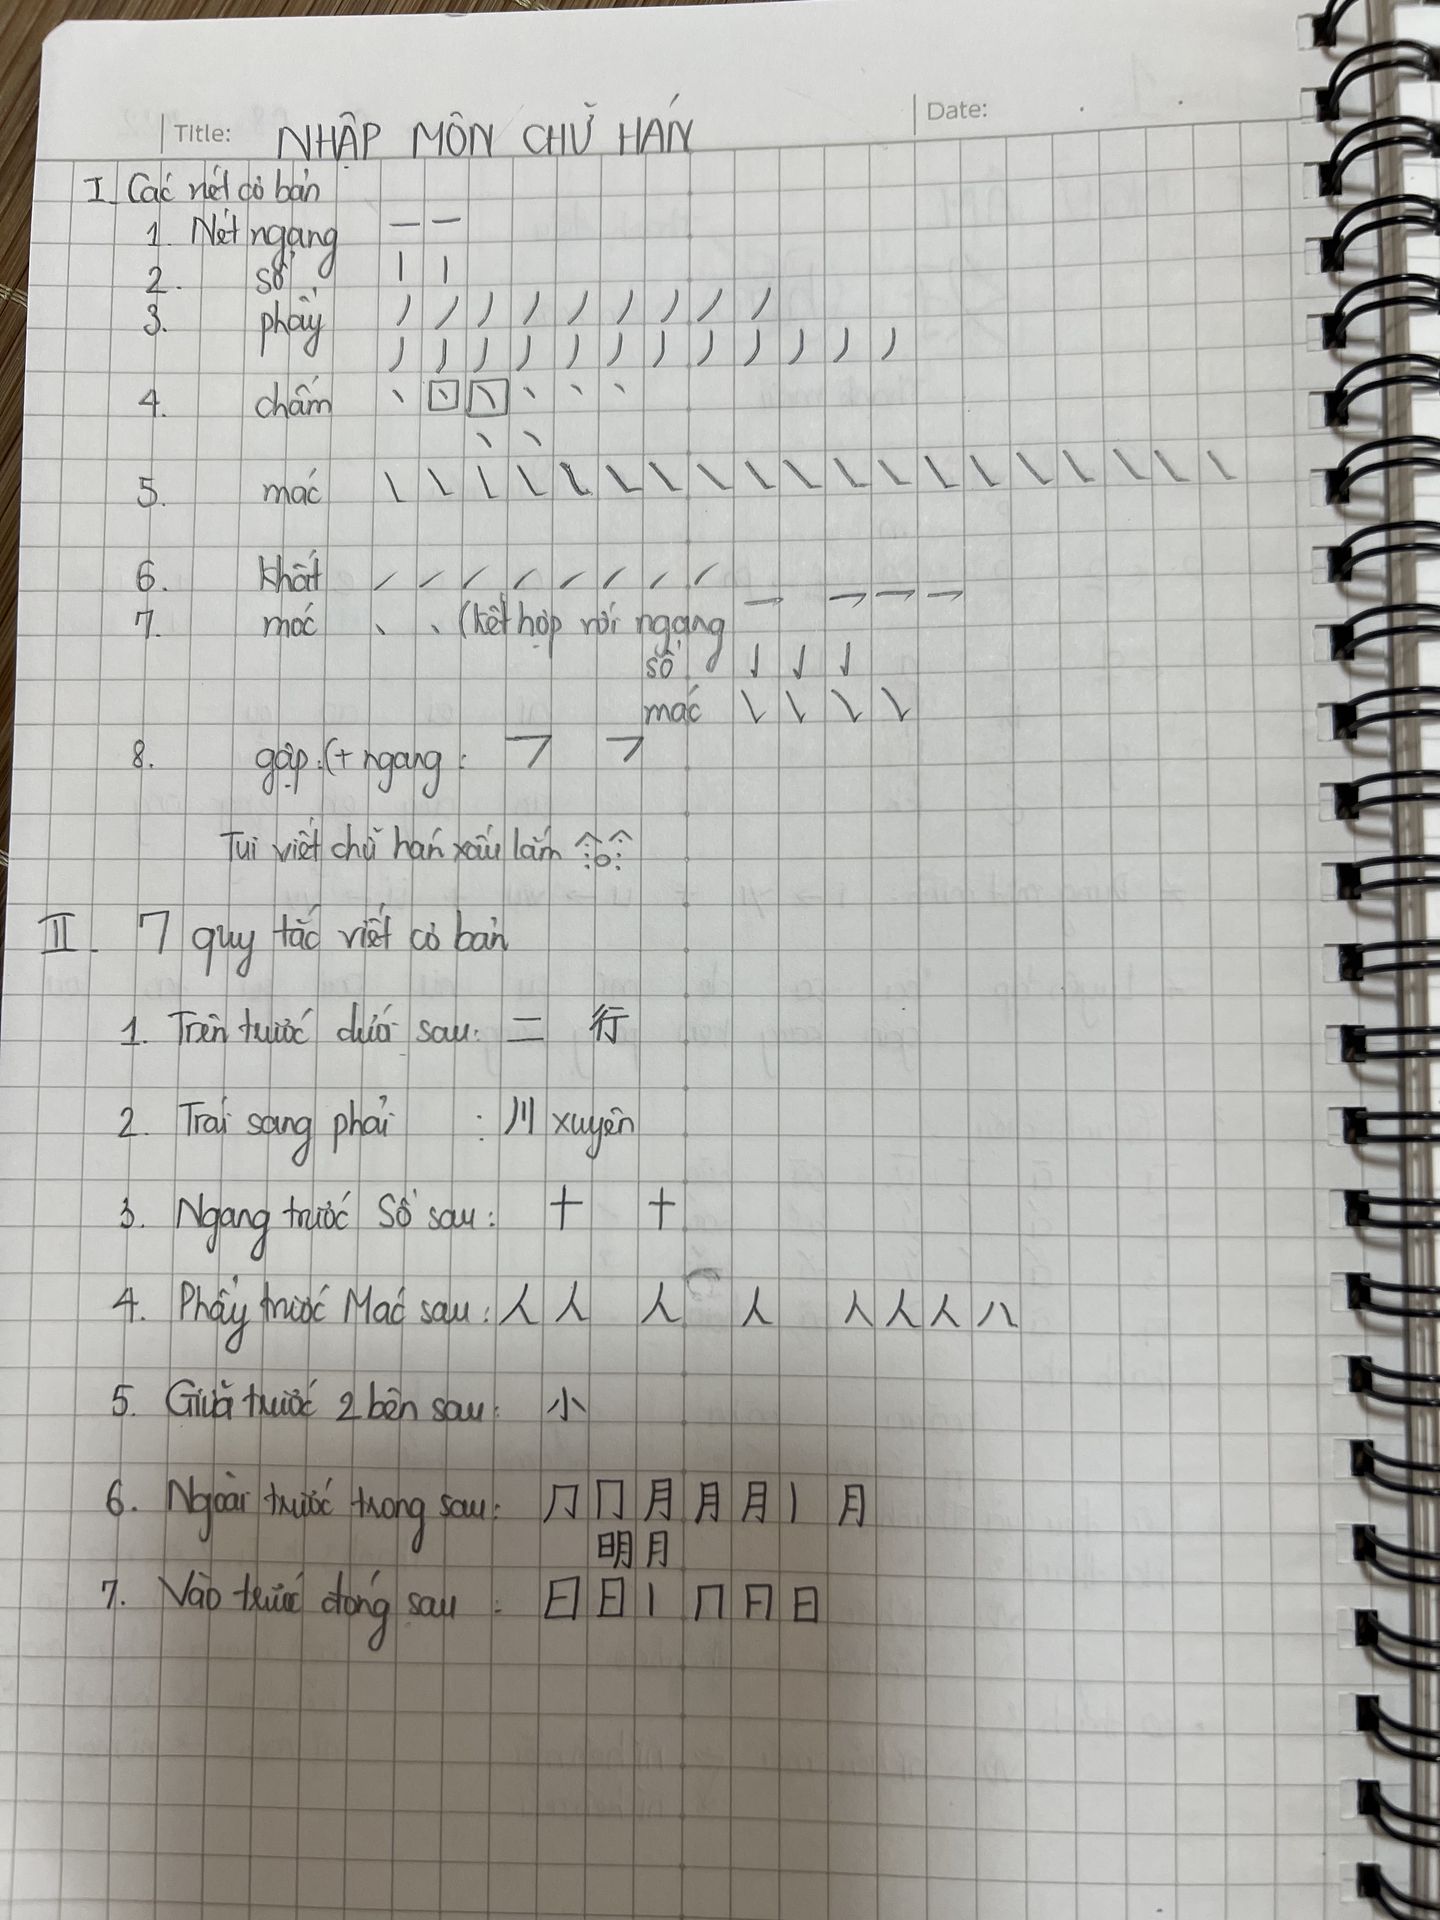 Title: NHẬP MÔN CHỮ HÁN
Date:
I. Các nét cơ bản
1. Nét ngang 一 一
2. sổ 丨 丨
3. phẩy 丿 丿 丿 丿 丿 丿 丿 丿 丿
丿 丿 丿 丿 丿 丿 丿 丿 丿 丿 丿 丿
4. chấm 丶 丶 丶 丶 丶 丶
丶 丶
5. mác ㇏ ㇏ ㇏ ㇏ ㇏ ㇏ ㇏ ㇏ ㇏ ㇏ ㇏ ㇏ ㇏ ㇏ ㇏ ㇏ ㇏ ㇏ ㇏
6. khất ㇀ ㇀ ㇀ ㇀ ㇀ ㇀ ㇀ ㇀
7. móc 丶 丶 (kết hợp với ngang ㇖ ㇖ ㇖ ㇖
sổ 亅 亅 亅
mác ㇂ ㇂ ㇂ ㇂
8. gập: (+ ngang: ㇇ ㇇
Tui viết chữ hán xấu lắm
II. 7 quy tắc viết cơ bản
1. Trên trước dưới sau: 二 行
2. Trái sang phải : 川 xuyên
3. Ngang trước Sổ sau: 十 十
4. Phẩy trước Mác sau: 人 人 人 人 人 人 人 八
5. Giữa trước 2 bên sau: 小
6. Ngoài trước trong sau: ⺆ 冂 月 月 月 丨 月
明 月
7. Vào trước đóng sau : 日 日 丨 冂 月 日